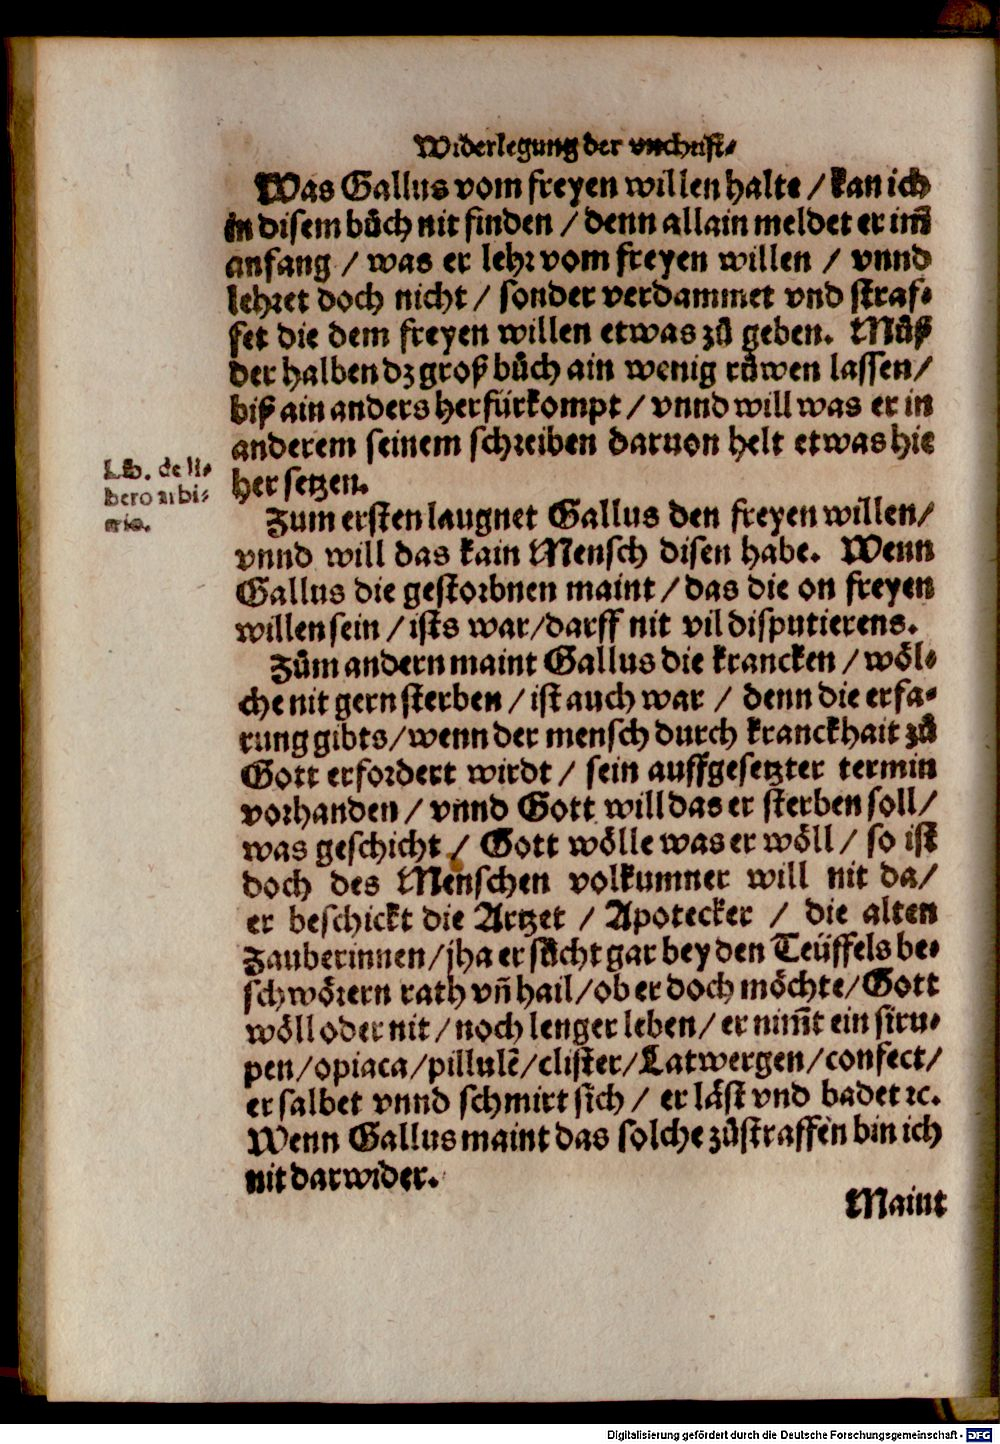 Widerlegung der vnchrist⸗
Was Gallus vom freyen willen halte / kan ich
in disem bůch nit finden / denn allain meldet er im̃
anfang / was er lehꝛ vom freyen willen / vnnd
lehꝛet doch nicht / sonder verdammet vnd straf⸗
fet die dem freyen willen etwas zů geben. Můß
der halben dz groß bůch ain wenig růwen lassen /
biß ain anders herfürkompt / vnnd will was er in
anderem seinem schꝛeiben daruon helt etwas hie
her setzen.
Lib. de li⸗
bero arbi⸗
trio.
Zum ersten laugnet Gallus den freyen willen /
vnnd will das kain Mensch disen habe. Wenn
Gallus die gestoꝛbnen maint / das die on freyen
willen sein / ists war / darff nit vil disputierens.
Zům andern maint Gallus die krancken / wöl⸗
che nit gern sterben / ist auch war / denn die erfa⸗
rung gibts / wenn der mensch durch kranckhait zů
Gott erfoꝛdert wirdt / sein auffgesetzter termin
voꝛhanden / vnnd Gott will das er sterben soll /
was geschicht / Gott wölle was er wöll / so ist
doch des Menschen volkumner will nit da /
er beschickt die Artzet / Apotecker / die alten
Zauberinnen / jha er sůcht gar bey den Teüffels be⸗
schwöꝛern rath vñ hail / ob er doch möchte / Gott
wöll oder nit / noch lenger leben / er nim̃t ein siru⸗
pen / opiaca / pillulẽ / clister / Latwergen / confect /
er salbet vnnd schmirt sich / er läst vnd badet ꝛc.
Wenn Gallus maint das solche zůstraffen bin ich
nit darwider.
Maint
Digitalisierung gefördert durch die Deutsche Forschungsgemeinschaft - DFG